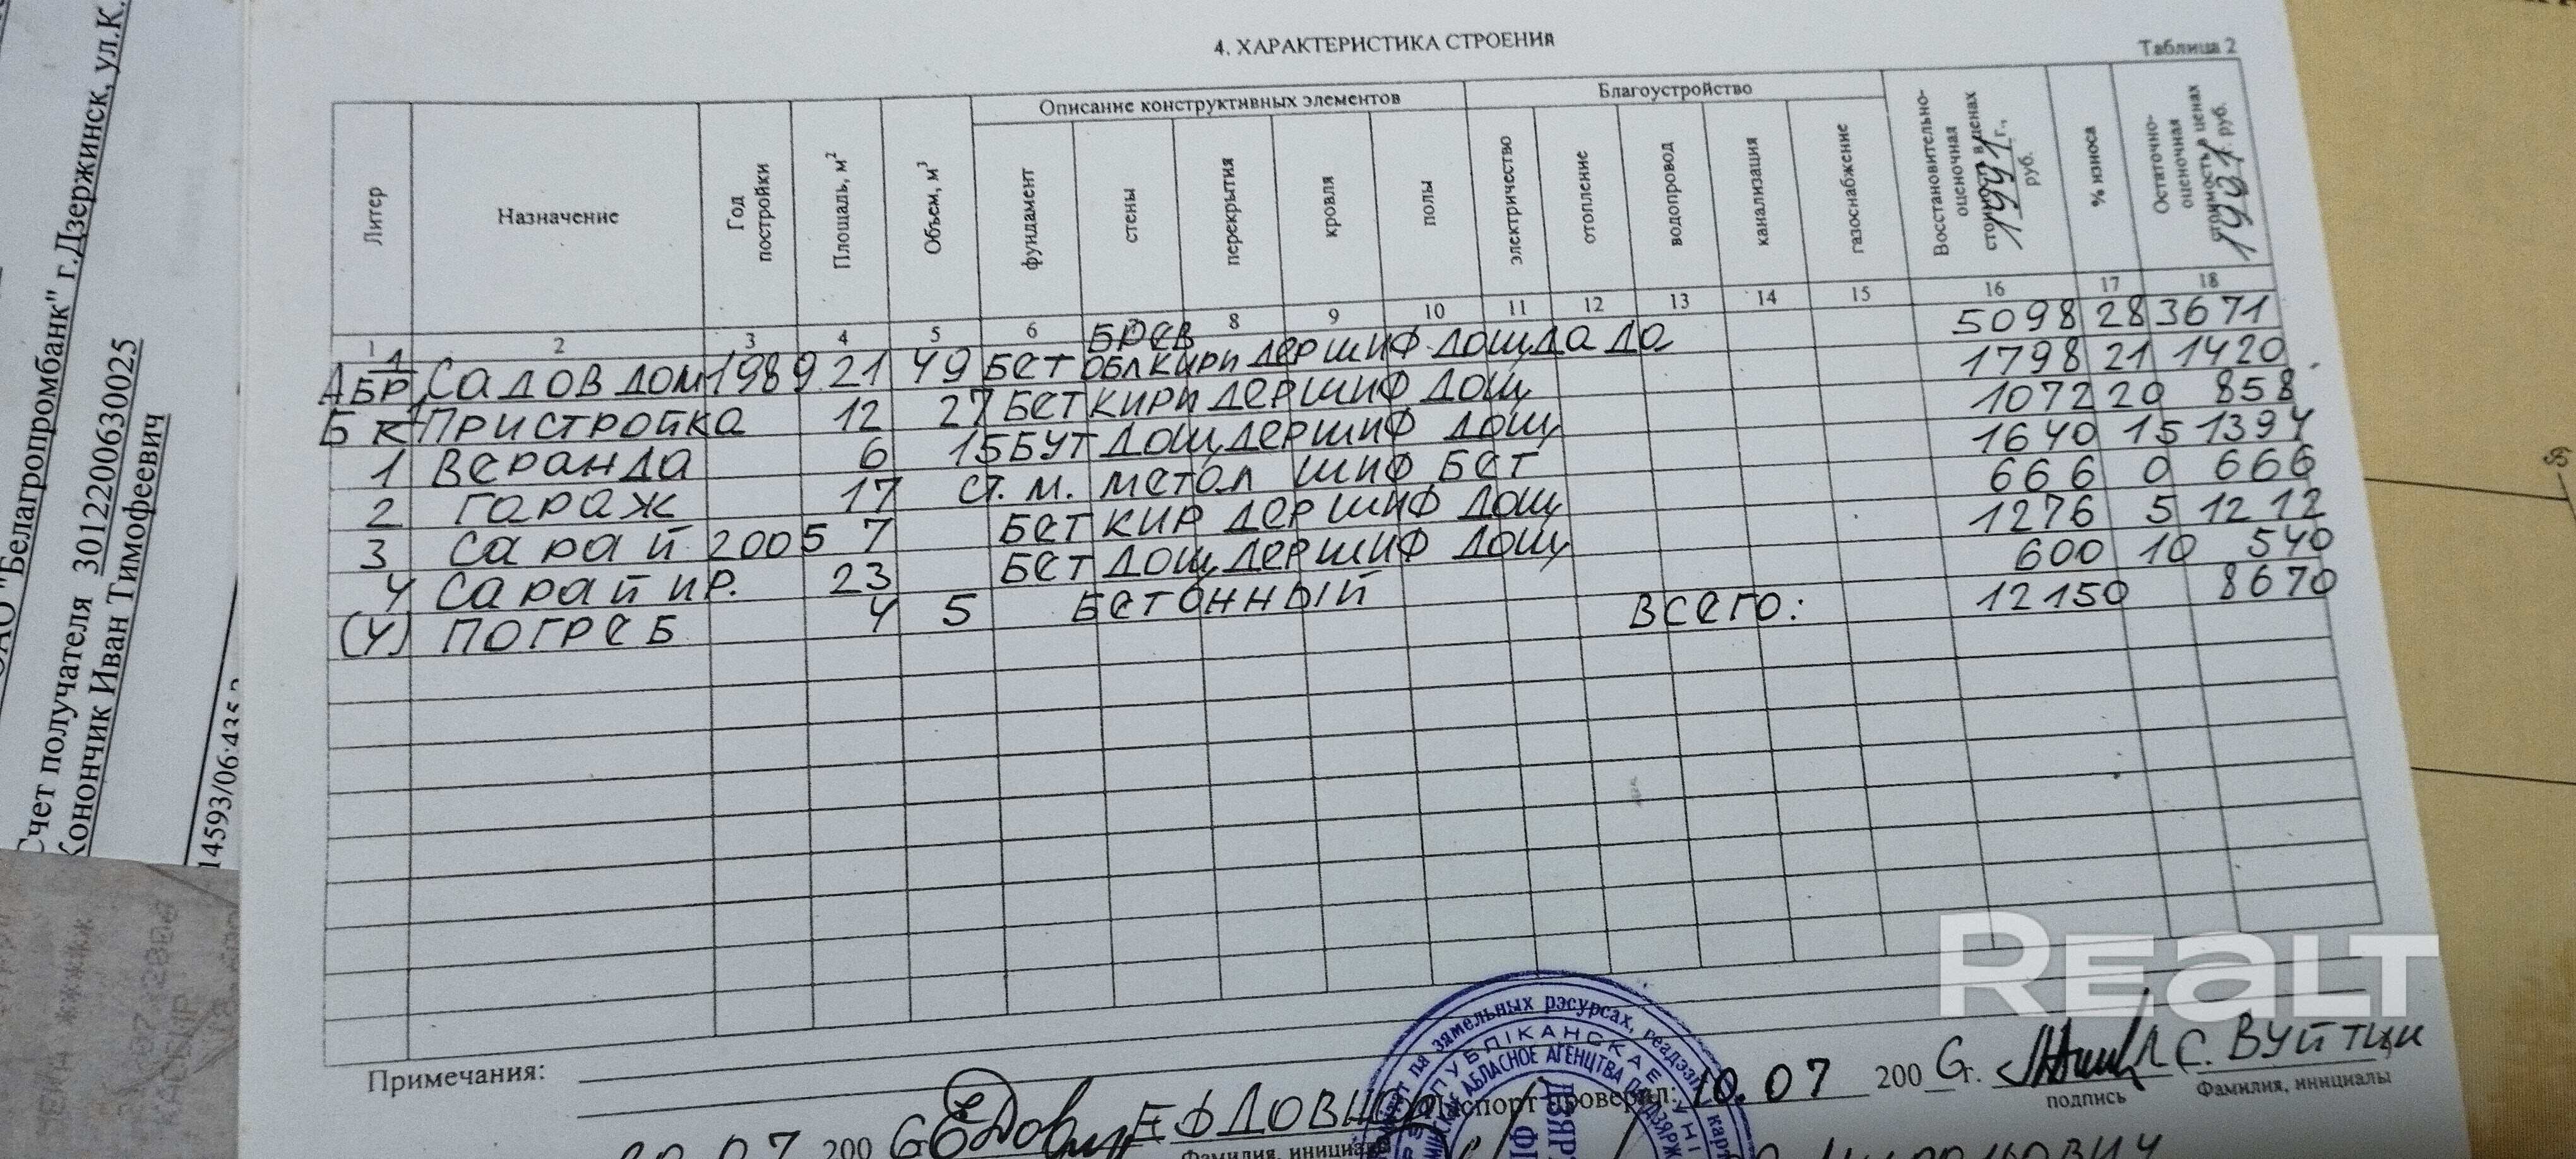 4. ХАРАКТЕРИСТИКА СТРОЕНИЯ
Таблица 2
Литер
Назначение
Год постройки
Площадь, м²
Объем, м³
Описание конструктивных элементов
фундамент
стены
перекрытия
кровля
полы
Благоустройство
электричество
отопление
водопровод
канализация
газоснабжение
Восстановительно-оценочная стоимость в ценах 1991 г., руб.
% износа
Остаточно-оценочная стоимость в ценах 1991 г. руб.
1 2 3 4 5 6 7 8 9 10 11 12 13 14 15 16 17 18
А 1 БР САДОВ ДОМ 1989 21 49 БЕТ БРЕВ ОБЛ КИРП ДЕР ШИФ ДОЩ ДА ДА 5098 28 3671
Б 1 К ПРИСТРОЙКА 12 27 БЕТ КИРП ДЕР ШИФ ДОЩ 1798 21 1420
1 ВЕРАНДА 6 15 БУТ ДОЩ ДЕР ШИФ ДОЩ 1072 20 858
2 ГАРАЖ 17 СТ. М. МЕТАЛ ШИФ БЕТ 1640 15 1394
3 САРАЙ 2005 7 БЕТ КИР ДЕР ШИФ ДОЩ 666 0 666
4 САРАЙ ПР. 23 БЕТ ДОЩ ДЕР ШИФ ДОЩ 1276 5 1212
(4) ПОГРЕБ 4 5 БЕТОННЫЙ 600 10 540
ВСЕГО: 12150 8670
Примечания:
Паспорт проверил: 10.07 2006 г. Л С. ВУЙТЦИ
подпись
Фамилия, инициалы
07 2006
Фамилия, инициалы
зямельных рэсурсах,
АБЛАСНОЕ АГЕНЦТВА
"Белагропромбанк" г.Дзержинск, ул.К.
Счет получателя 3012200630025
Конончик Иван Тимофеевич
14593/06:435
REALT